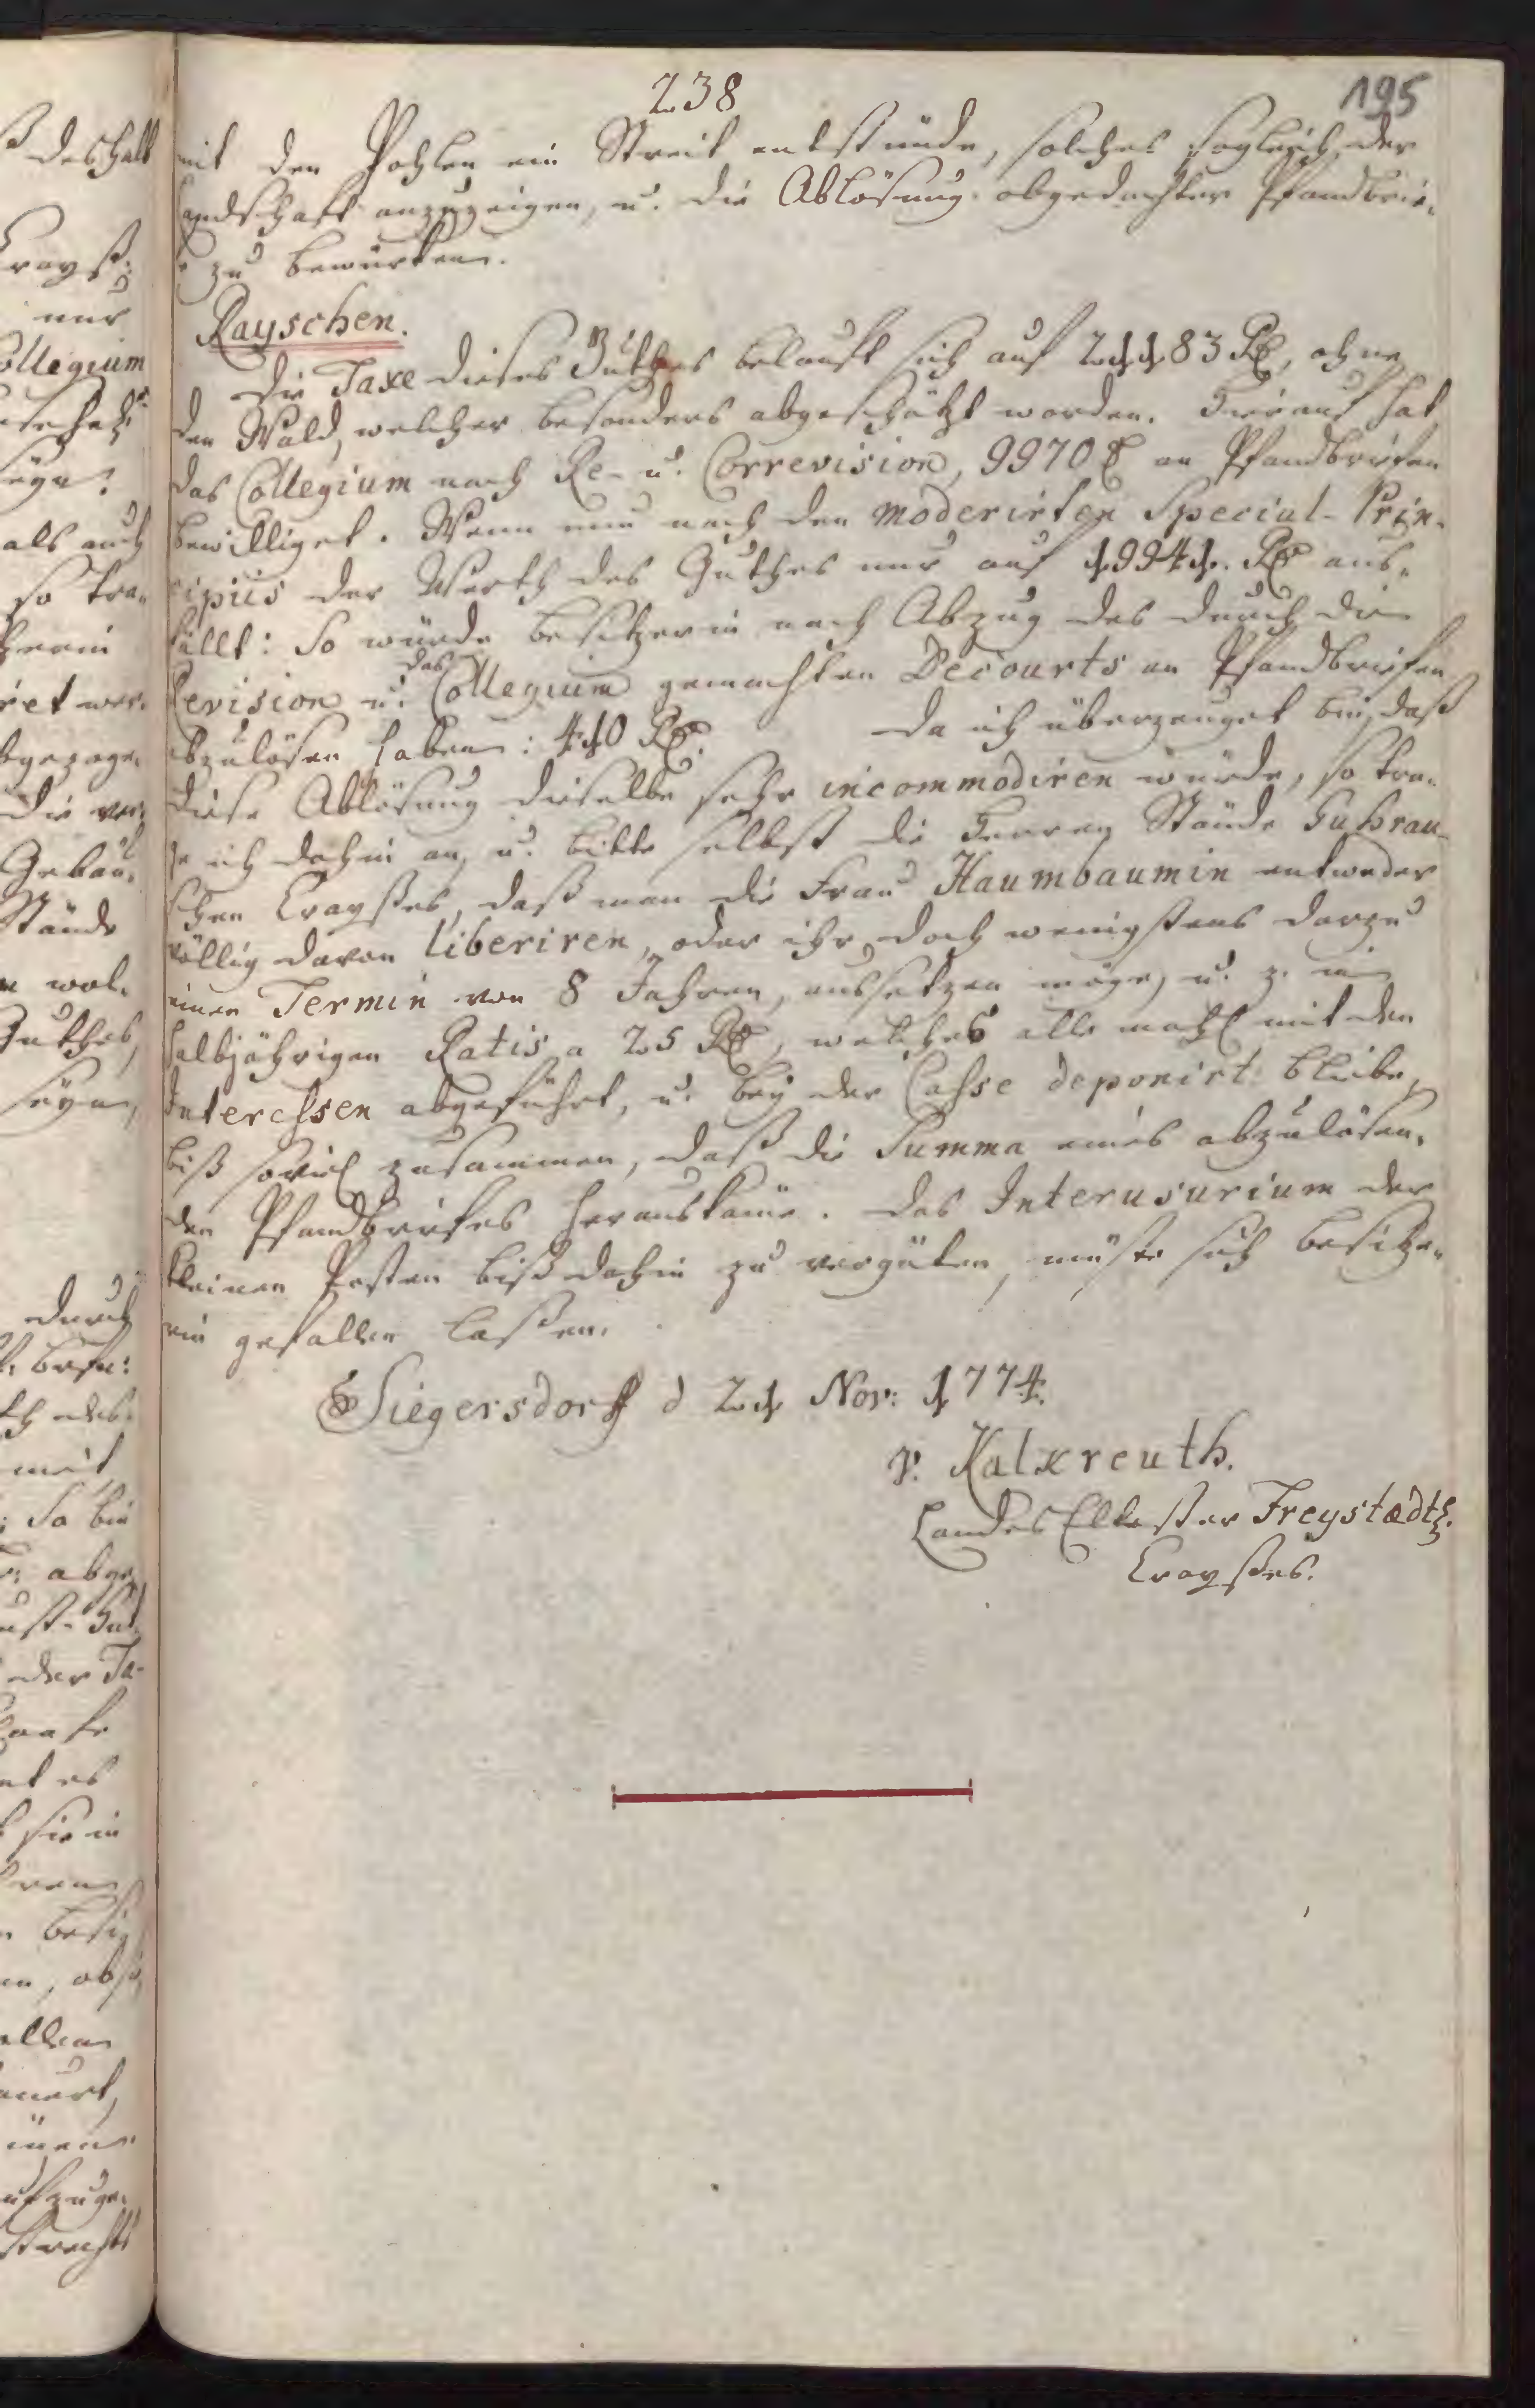 238
195
mit den Pohlen ein Streit entstünde, solches sogleich der
Landschaft anzuzeigen, u. die Ablösung obgedachter Pfandbrie-
fe zu bewürken.
Rayschen.
Die Taxe dieses Guthes belauft sich auf 21183 Rl, ohne
den Wald, welcher besonders abgeschäzt worden. Hierauf hat
das Collegium nach Re- u. Correvision, 9970 Rl an Pfandbriefen
bewilliget. Wenn nun nach den moderirten Special-Prin-
cipiis der Werth des Guthes nur auf 19941. Rl aus-
fällt: So würde Besitzerin nach Abzug des durch die
Revision u. das Collegium gemachten Decourts an Pfandbriefen
abzulösen haben: 410 Rl. Da ich überzeuget bin, daß
diese Ablösung dieselbe sehr incommodiren würde, so tra-
ge ich dahin an, u. bitte selbst die Herren Stände Guhrau-
schen Crayßes, daß man die Frau Haumbaumin entweder
völlig davon liberiren, oder ihr doch wenigstens darzu
einen Termin von 8 Jahren, aussetzen möge, u. z. in
halbjährigen Ratis a 25 Rl, welches alle mahl mit den
Interessen abgeführt, u. bey der Casse deponirt bliebe,
biß soviel zusammen, daß die Summa eines abzulösen-
den Pfandbriefes herauskäme. Das Interusurium der
kleinen Posten biß dahin zu vergüten, müste sich Besitze-
rin gefallen laßen.
Siegersdorff d 21 Nov: 1774.
v. Kalkreuth.
Landes Eltester Freystædtl.
Crayßes.